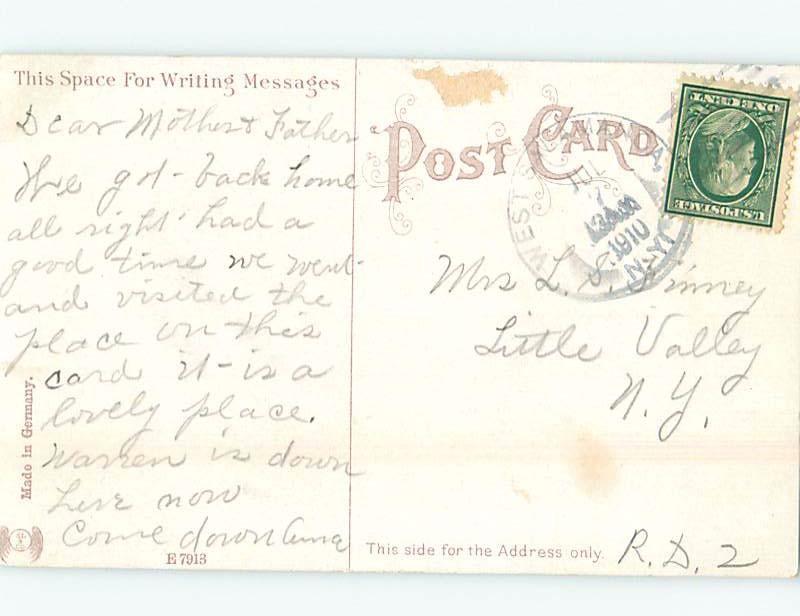 This Space For Writing Messages
Dear Mother & Father
We got back home
all right had a
good time we went
and visited the
place on this
card it is a
lovely place.
Warren is down
here now
Come down Anna
Made in Germany.
E 7913
POST CARD
WEST
JUL
7
1910
N.Y.
ONE CENT
U.S. POSTAGE
Mrs L. S. Finney
Little Valley
N. Y.
This side for the Address only.
R. D. 2